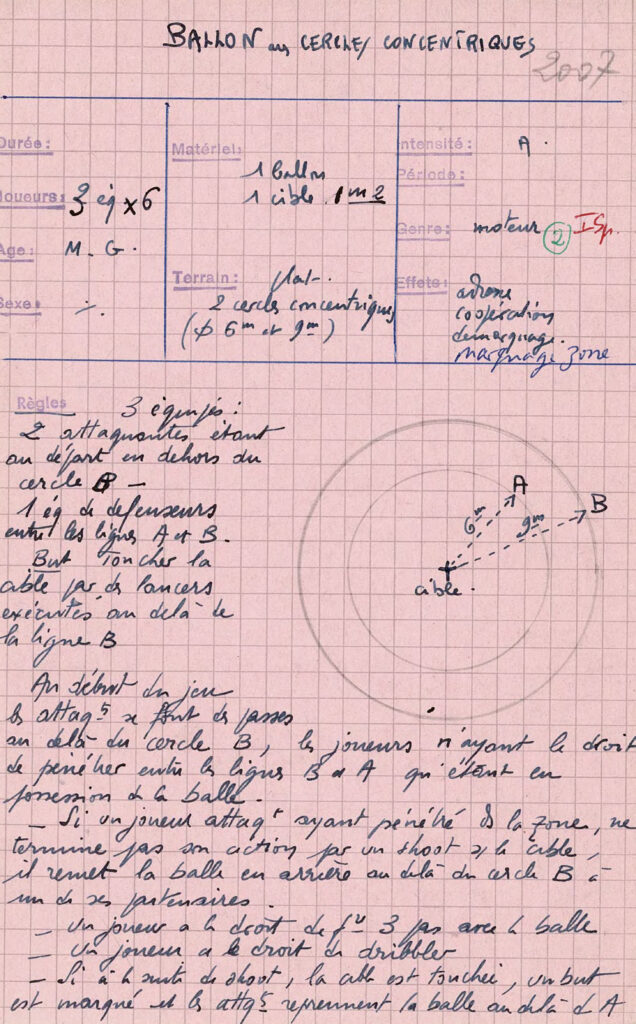 BALLON aux CERCLES CONCENTRIQUES
2007
Durée :
Joueurs : 3 éq x 6
Age : M. G.
Sexe :
Matériel :
1 ballon
1 cible 1 m 2
Terrain : plat.
2 cercles concentriques
(φ 6m et 9m)
Intensité : A.
Période :
Genre : moteur 2 ISp.
Effets : adresse
coopération
démarquage.
marquage zone
Règles
3 équipes :
2 attaquantes étant
au départ en dehors du
cercle B —
1 éq de defenseurs
entre les lignes A et B.
But Toucher la
cible par des lancers
exécutés au delà de
la ligne B
A
B
6m
9m
cible.
Au début du jeu
les attaqts se font des passes
au delà du cercle B, les joueurs n'ayant le droit
de pénétrer entre les lignes B et A qu'étant en
possession de la balle.
— Si un joueur attaqt ayant pénétré ds la zone, ne
termine pas son action par un shoot s/ la cible,
il remet la balle en arrière au delà du cercle B à
un de ses partenaires.
— Un joueur a le droit de 3 pas avec la balle
— Un joueur a le droit de dribbler
— Si à la suite du shoot, la cible est touchée, un but
est marqué et les attqts reprennent la balle au delà d A